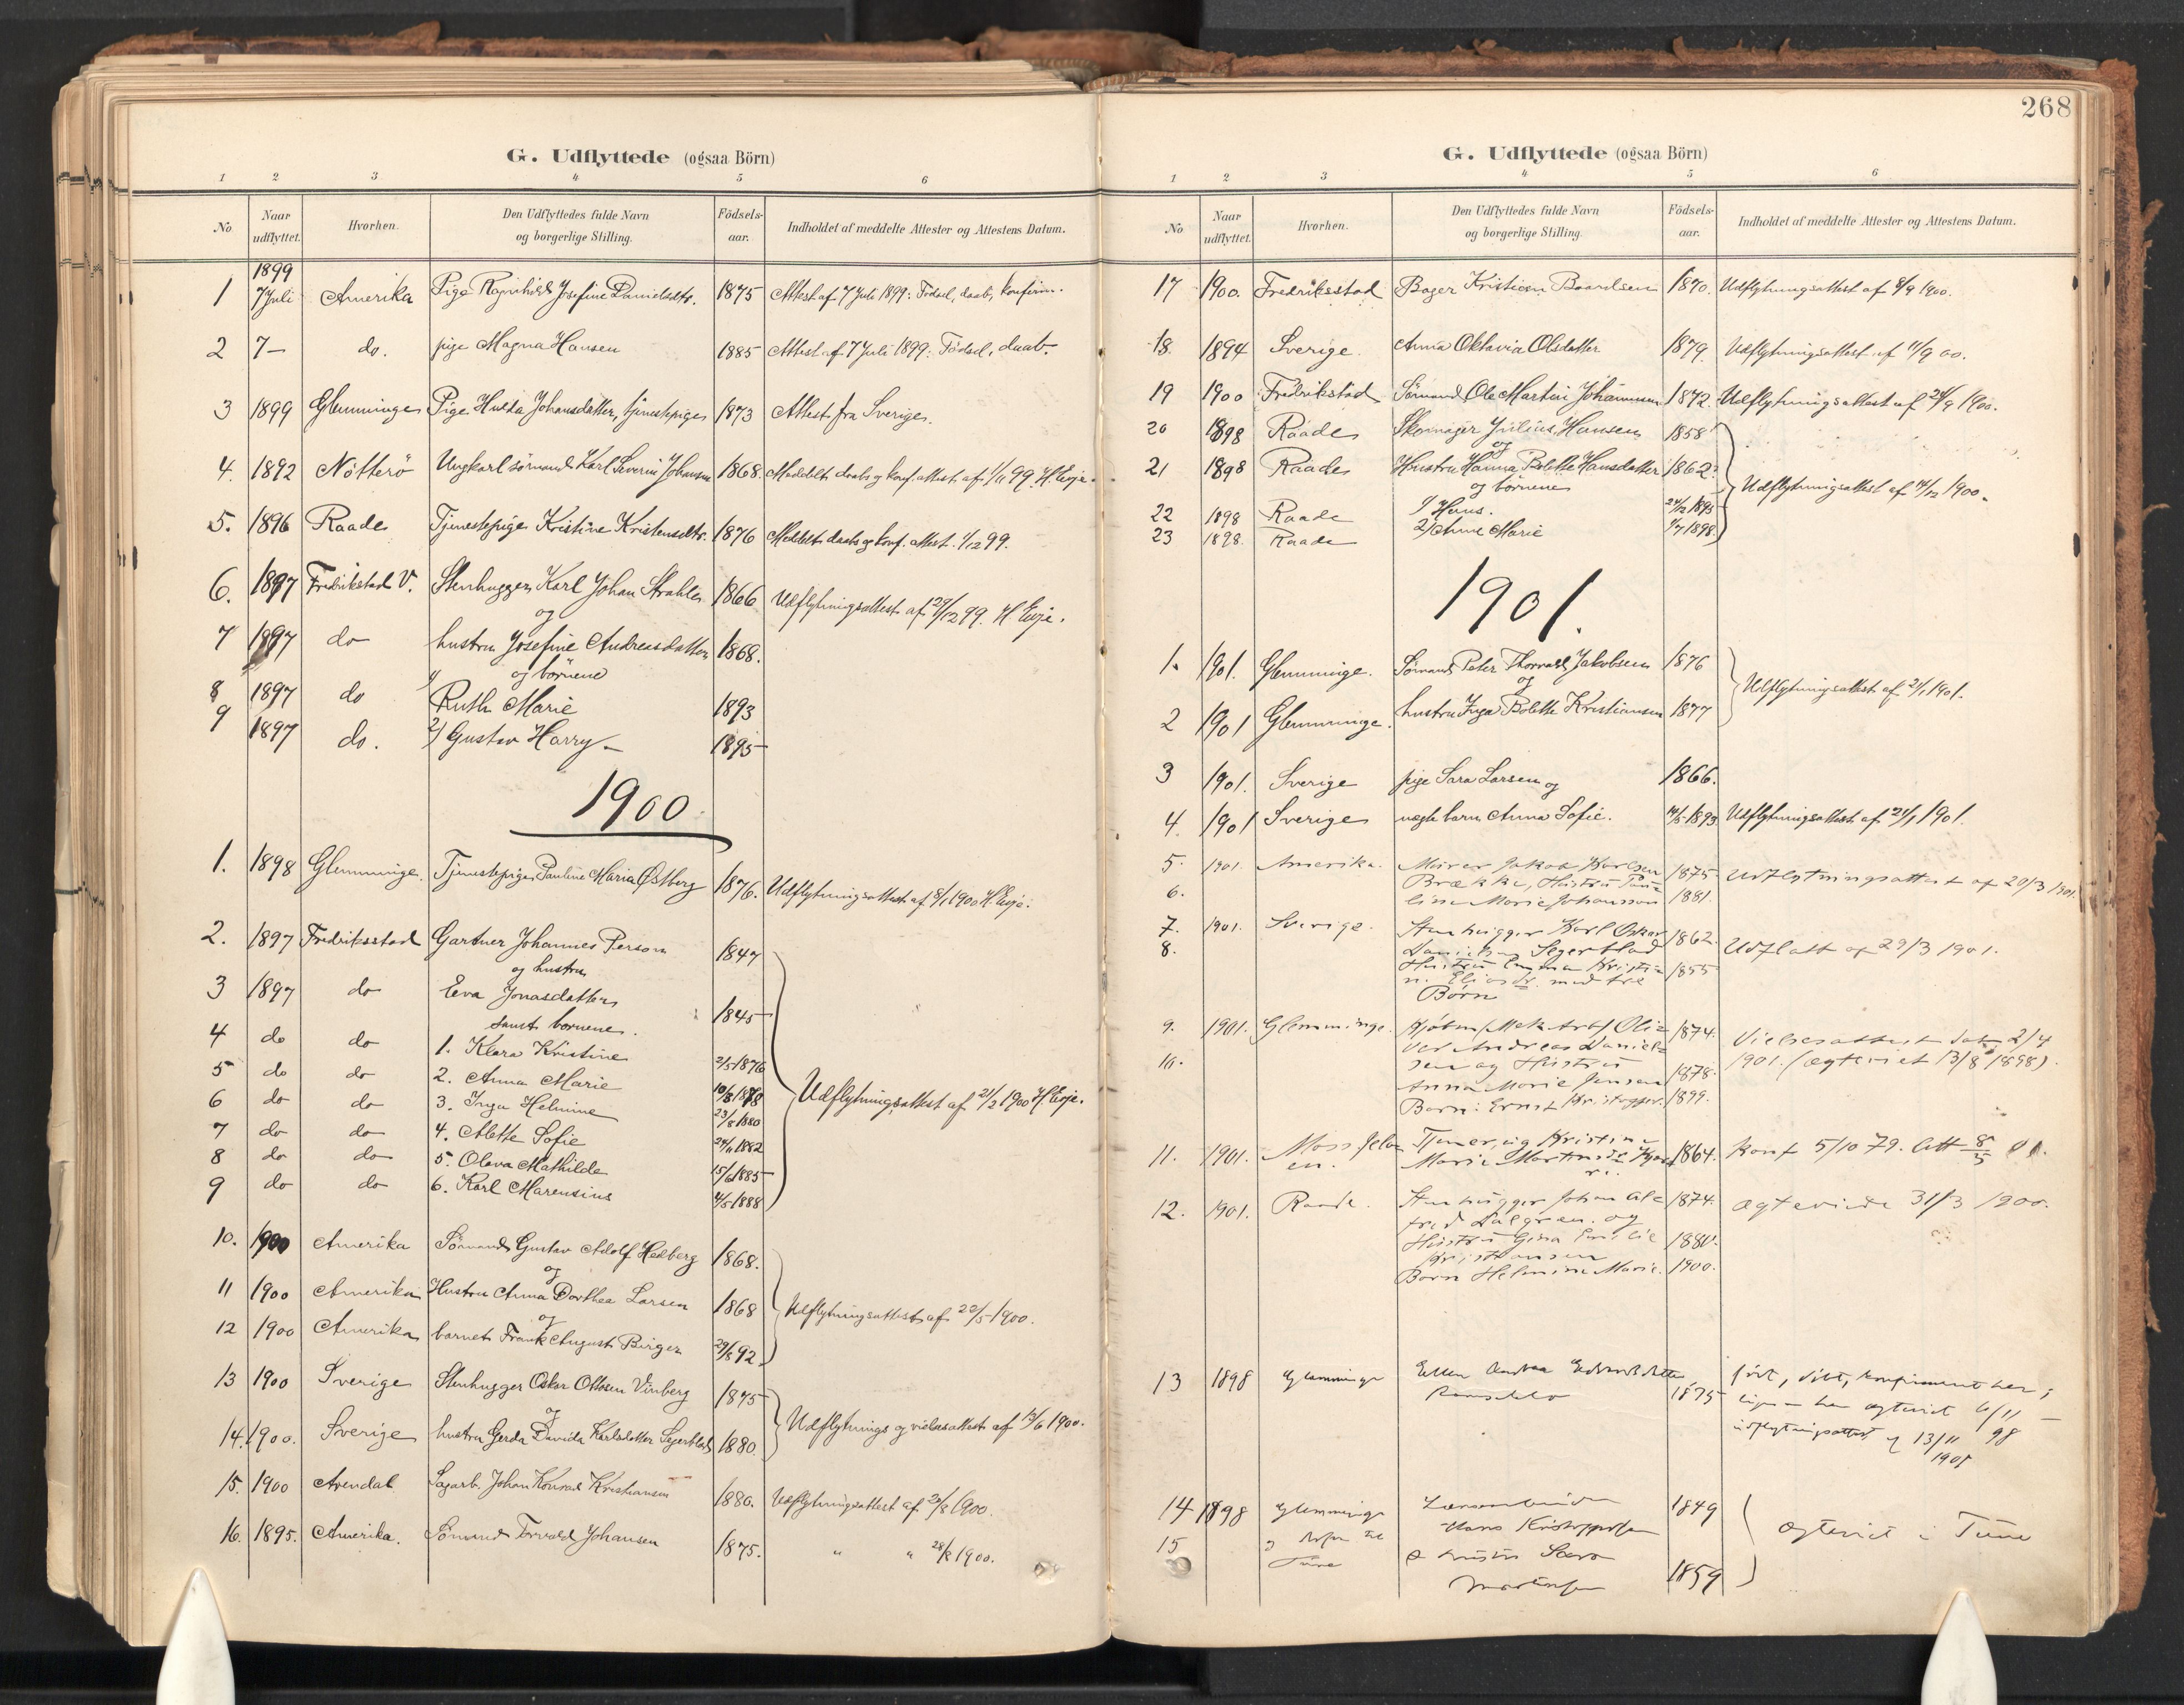 G. Udflyttede (ogsaa Börn)
1 2 3 4 5 6
No. Naar udflyttet. Hvorhen. Den Udflyttedes fulde Navn og borgerlige Stilling. Födsels-aar. Indholdet af meddelte Attester og Attestens Datum.
1 1899 7 Juli Amerika Pige Ragnhild Josefine Danielsdtr. 1875 Attest af 7 Juli 1899: Födsel, daab, konfirm.
2 7 — do. pige Magna Hansen 1885 Attest af 7 Juli 1899: Födsel, daab.
3 1899 Glemminge Pige Hulda Johansdatter, tjenestepige 1873 Attest fra Sverige.
4. 1892 Nötterö Ungkarl sömand Karl Severin Johansen 1868. Meddelt daabs og konf. attest af 1/11 99 H. Evje.
5. 1896 Raade Tjenestepige Kristine Kristensdtr. 1876 Meddelt daabs og konf. attest. 1/12 99.
6. 1897 Fredrikstad V. Stenhugger Karl Johan Strahle 1866 Udflytningsattest af 29/12 99. H Evje.
og
7 1897 do hustru Josefine Andreasdatter 1868.
og börnene
8 1897 do 1) Ruth Marie 1893
9 1897 do. 2) Gustav Harry 1895
1900
1. 1898 Glemminge. Tjenestepige Pauline Maria Østberg 1876. Udflytningsattest af 8/1 1900 H. Evje.
2. 1897 Fredriksstad Gartner Johannes Person 1847
og hustru
3 1897 do Eva Jonasdatter 1845
samt börnene.
4 do do 1. Klara Kristine 2/5 1876
5 do do 2. Anna Marie 10/8 1878 Udflytningsattest af 21/2 1900 H. Evje.
6 do do 3. Inga Helmine 23/8 1880
7 do do 4. Alette Sofie 24/11 1882
8 do do 5. Olava Mathilde 15/6 1885
9 do do 6. Karl Marensius 4/5 1888
10. 1900 Amerika Sömand Gustav Adolf Hedberg 1868.
og
11 1900 Amerika Hustru Anna Dorthea Larsen 1868 Udflytningsattest af 22/5 1900.
og
12 1900 Amerika barnet Frank August Birger 29/8 92
13 1900 Sverige Stenhugger Oskar Ottosen Vinberg 1875
og Udflytnings og vielsesattest af 13/6 1900.
14. 1900. Sverige hustru Gerda Davida Karlsdatter Segerblad 1880.
15. 1900 Arendal Sagarb. Johan Konrad Kristiansen 1880. Udflytningsattest af 20/8 1900.
16. 1895. Amerika. Sömand Torvald Johansen 1875. " " 28/8 1900.
268
G. Udflyttede (ogsaa Börn)
1 2 3 4 5 6
No Naar udflyttet. Hvorhen. Den Udflyttedes fulde Navn og borgerlige Stilling. Födsels-aar. Indholdet af meddelte Attester og Attestens Datum.
17 1900. Fredriksstad Bager Kristian Baardsen 1870. Udflytningsattest af 8/9 1900.
18. 1894 Sverige. Anna Oktavia Olsdatter 1879. Udflytningsattest af 11/9 00.
19 1900 Fredrikstad Sömand Ole Martin Johannesen 1872. Udflytningsattest af 24/9 1900.
20 1898 Raade Skomager Julius Hansen 1858
og
21 1898 Raade Hustru Hanna Bolette Hansdatter 1862. Udflytningsattest af 14/12 1900.
og börnene
22 1898 Raade 1/ Hans. 24/12 1895
23 1898. Raade 2/ Anne Marie 1/7 1898.
1901.
1. 1901. Glemminge. Sömand Peter Thorvald Jakobsen 1876
og Udflytningsattest af 2/1 1901.
2 1901 Glemminge. hustru Inga Bolette Kristiansen 1877
3 1901. Sverige pige Sara Larsen og 1866.
4. 1901 Sverige uægte barn Anna Sofie. 14/5 1893 Udflytningsattest af 21/1 1901.
5. 1901. Amerika. Murer Jakob Karlsen 1875
Brække, Hustru Pau- Udflytningsattest af 20/3 1901.
6. line Marie Johansson 1881.
7. 1901. Sverige. Stenhugger Karl Oskar 1862.
8. Danielsen Segerblad Udfl att af 29/3 1901.
Hustru Emma Kristi- 1855
n. Eliasdr. med tre
Børn
9. 1901. Glemminge. Kjøbm/Mek Arb/ Oli- 1874. Vielsesattest dat 2/4
ver Andreas Daniel- 1901. (ægteviet 13/8 1898).
10. sen og Hustru
Anna Marie Jensen 1878.
Barn: Ernst Kristoffer. 1899.
11. 1901. Moss Tjener, Kristine 1864. Konf 5/10 79. Att 8/5 01.
en. Marie
12. 1901. Raade. Stenhugger Johan Al- 1874. Ægteviede 31/3 1900.
fred Dalgren. og
Hustru Gina Emilie 1880.
Kristiansen
Barn Helmine Marie. 1900.
13 1898 Glemminge Ellen Andrea 1875 født, døbt, konfirmeret her;
ægteviet 6/11 98
udflytningsattest af 13/11 1901
14 1898 Glemminge 1849
Hans Kristoffersen ægteviet i Tune
15 Tune & hustru 1859